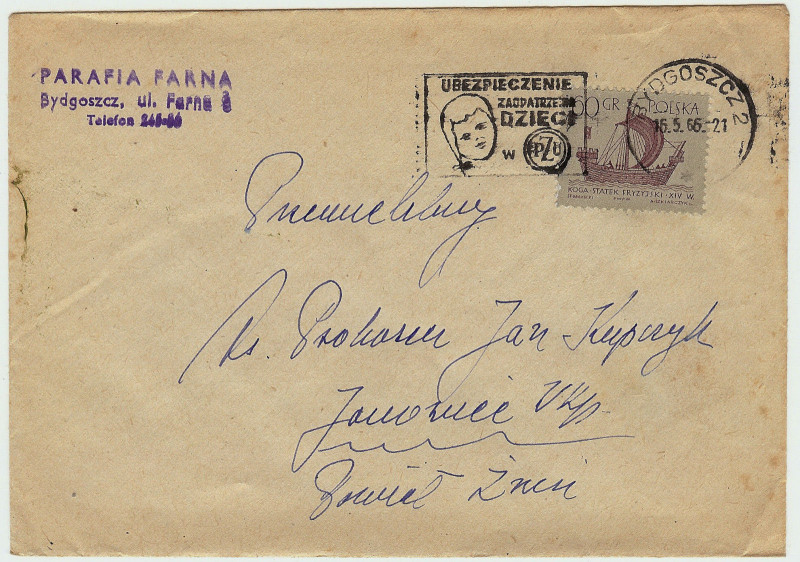 PARAFIA FARNA
Bydgoszcz, ul. Farna 2
Telefon
UBEZPIECZENIE
ZAOPATRZENIE
DZIECI
w PZU
60 GR POLSKA
BYDGOSZCZ 2
16.5.66.-21
KOGA-STATEK FRYZYJSKI-XIV W.
Przewielebny
Ks. Proboszcz Jan Kupczyk
Janowiec Wlkp.
Powiat Żnin